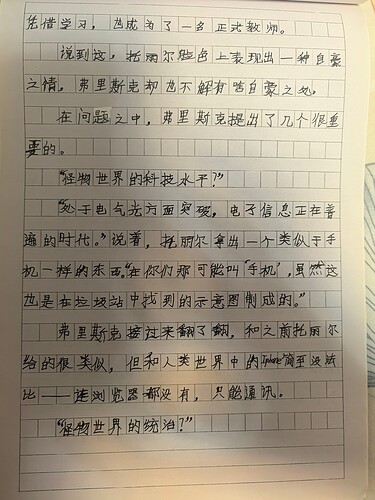 凭借学习，也成为了一名正式教师。
说到这，托丽尔脸色上表现出一种自豪
之情，弗里斯克却也不解有啥自豪之处。
在问题之中，弗里斯克提出了几个很重
要的。
“怪物世界的科技水平？”
“处于电气光方面突破，电子信息正在普
遍的时代。”说着，托丽尔拿出一个类似于手
机一样的东西。“在你们那可能叫‘手机’，虽然这
也是在垃圾站中找到的示意图制成的。”
弗里斯克接过来翻了翻，和之前托丽尔
给的很类似，但和人类世界中的iphone简至没法
比——连浏览器都没有，只能通讯。
“怪物世界的统治？”